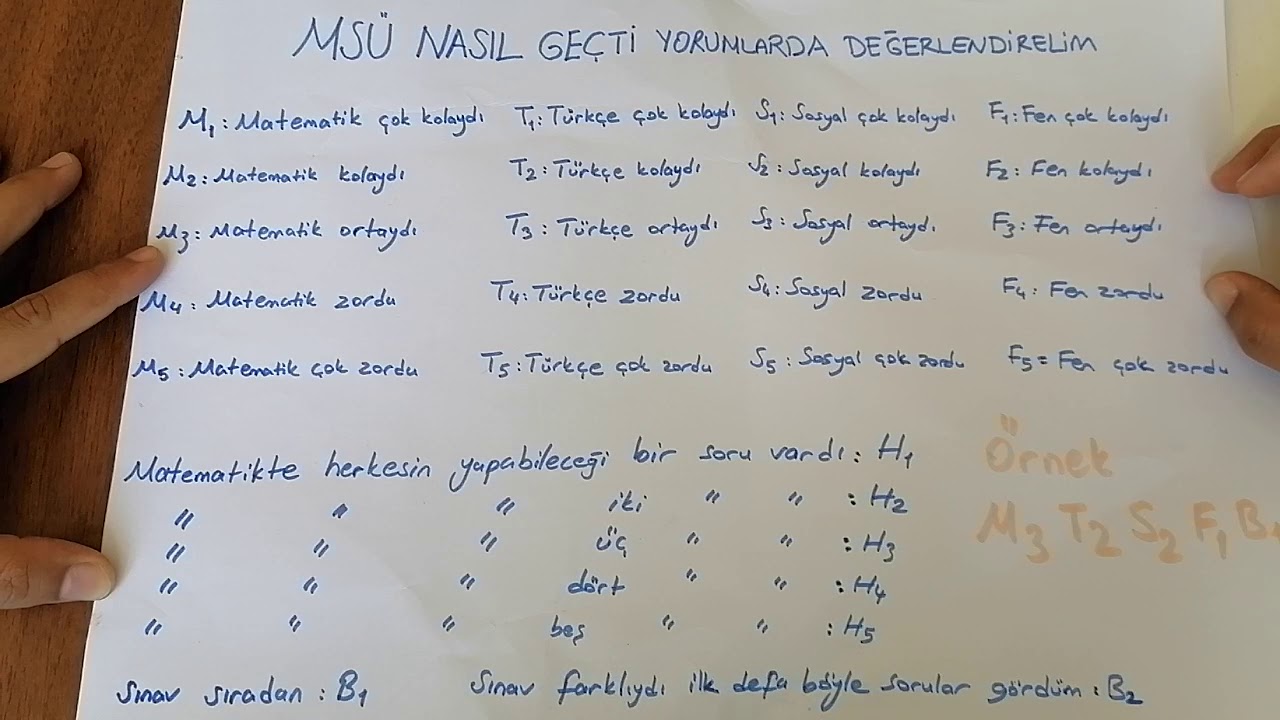 MSÜ NASIL GEÇTİ YORUMLARDA DEĞERLENDİRELİM
M1: Matematik çok kolaydı T1: Türkçe çok kolaydı S1: Sosyal çok kolaydı F1: Fen çok kolaydı
M2: Matematik kolaydı T2: Türkçe kolaydı S2: Sosyal kolaydı F2: Fen kolaydı
M3: Matematik ortaydı T3: Türkçe ortaydı S3: Sosyal ortaydı F3: Fen ortaydı
M4: Matematik zordu T4: Türkçe zordu S4: Sosyal zordu F4: Fen zordu
M5: Matematik çok zordu T5: Türkçe çok zordu S5: Sosyal çok zordu F5= Fen çok zordu
Matematikte herkesin yapabileceği bir soru vardı: H1
" " " iki " " : H2
" " " üç " " : H3
" " " dört " " : H4
" " " beş " " : H5
Örnek
M3 T2 S2 F1 B
Sınav sıradan: B1 Sınav farklıydı ilk defa böyle sorular gördüm: B2